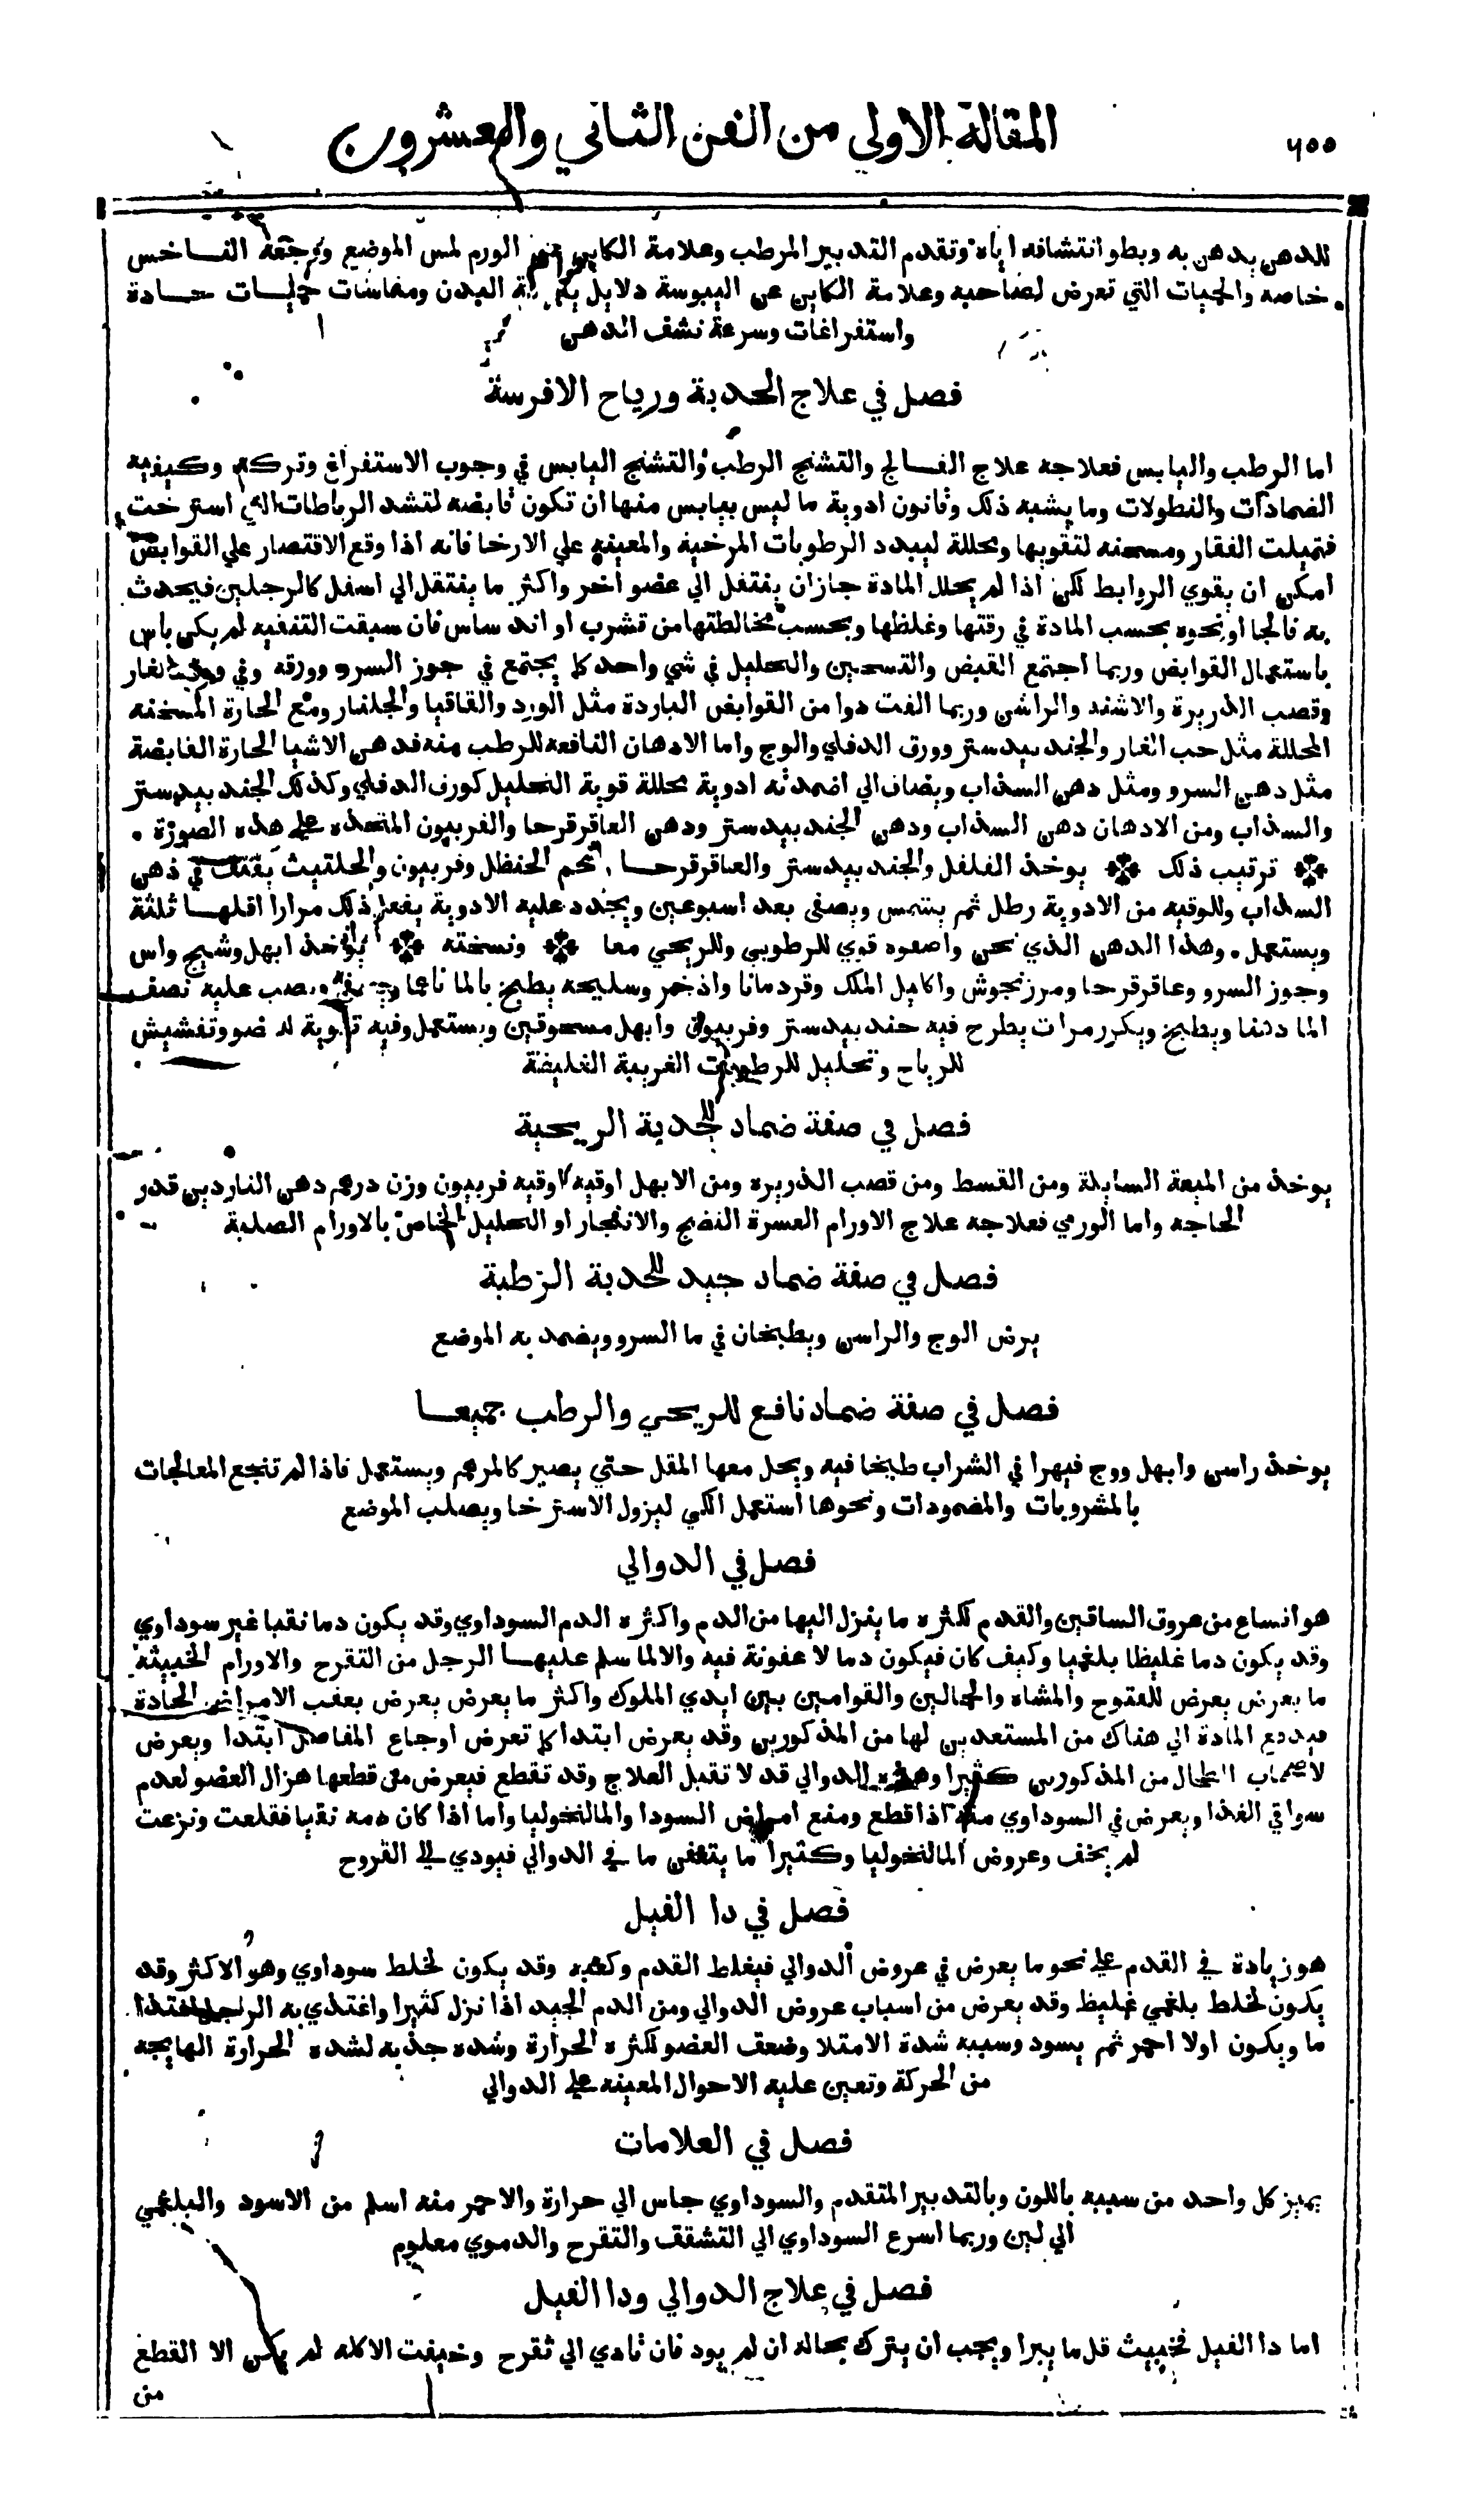 ٦٠٠
المقالة الاولي من الفن الثاني والعشرون
للدهن يدهن به وبطو انتشافه اياه وتقدم التدبير المرطب وعلامة الكاين عن الورم لمس الموضع ووجعه الناخس
خاصه والحميات التي تعرض لصاحبه وعلامة الكاين عن اليبوسة دلايل البدن ومقاسات حميات حادة
واستفراغات وسرعة نشف الدهن
فصل في علاج الحدبة ورياح الافرسة
اما الرطب واليابس فعلاجه علاج الفالج والتشنج الرطب والتشنج اليابس في وجوب الاستفراغ وتركه وكيفيه
الضمادات والنطولات وما يشبه ذلك وقانون ادوية ما ليس بيابس منها ان تكون قابضه لتشد الرباطات التي استرخت
فتميلت الفقار ومسخنه لتقويها ومحللة ليبدد الرطوبات المرخية والمعينه علي الارخا فانه اذا وقع الاقتصار علي القوابض
امكن ان يقوي الروابط لكن اذا لم يحلل المادة جاز ان ينتقل الي عضو اخر واكثر ما ينتقل الي اسفل كالرجلين فيحدث
به فالجا او نحوه بحسب المادة في رقتها وغلظها وبحسب مخالطتها من تشرب او اند ساس فان سبقت التنقيه لم يكن باس
باستعمال القوابض وربما اجتمع القبض والتسخين والتحليل في شي واحد كما يجتمع في جوز السرو وورقه وفي ورق الغار
وقصب الذريرة والاشنه والراشن وربما الفت دوا من القوابض الباردة مثل الورد والقاقيا والجلنار ومع الحارة المسخنه
المحللة مثل حب الغار والجند بيدستر وورق الدفلي والوج واما الادهان النافعه للرطب منه فدهن الاشيا الحارة القابضة
مثل دهن السرو ومثل دهن السذاب ويضاف الي اضمدته ادوية محللة قوية التحليل كورق الدفلي وكذلك الجند بيدستر
والسذاب ومن الادهان دهن السذاب ودهن الجند بيدستر ودهن العاقرقرحا والفربيون المتخذه علي هذه الصورة
ترتيب ذلك يوخذ الفلفل والجند بيدستر والعاقرقرحا شحم الحنظل وفربيون والحلتيث يفتق في دهن
السذاب وللوقيه من الادوية رطل ثم يشمس ويصفي بعد اسبوعين ويجدد عليه الادوية يفعل ذلك مرارا اقلها ثلثة
ويستعمل وهذا الدهن الذي نحن واصفوه قوي للرطوبي وللريحي معا ونسخته يوخذ ابهل وشيح واس
وجوز السرو وعاقرقرحا ومرزنجوش واكليل الملك وقردمانا واذخر وسليخه يطبخ بالما ناعما يصب عليه نصف
الما دهنا ويطبخ ويكرر مرات يطرح فيه جند بيدستر وفربيون وابهل مسحوقين ويستعمل وفيه تقوية له ضو وتفشيش
للرياح وتحليل للرطوبات الغريبة الغليظة
فصل في صفة ضماد للحدبة الريحية
يوخذ من الميعة السايلة ومن القسط ومن قصب الذريره ومن الابهل اوقيه اوقيه فربيون وزن درهم دهن الناردين قدر
الحاجه واما الورمي فعلاجه علاج الاورام العسرة النضج والانفجار او التحليل الخاص بالاورام الصلبة
فصل في صفة ضماد جيد للحدبة الرطبة
يرض الوج والراسن ويطبخان في ما السرو ويضمد به الموضع
فصل في صفة ضماد نافع للريحي والرطب جميعا
يوخذ راسن وابهل ووج فيهرا في الشراب طبخا فيه ويحل معها المقل حتي يصير كالمرهم ويستعمل فاذا لم تنجع المعالجات
بالمشروبات والمضمودات ونحوها استعمل الكي ليزول الاسترخا ويصلب الموضع
فصل في الدوالي
هو اتساع من عروق الساقين والقدم لكثره ما ينزل اليها من الدم واكثره الدم السوداوي وقد يكون دما نقيا غير سوداوي
وقد يكون دما غليظا بلغميا وكيف كان فيكون دما لا عفونة فيه والا لما سلم عليها الرجل من التقرح والاورام الخبيثه
ما يعرض يعرض للفيوج والمشاه والحمالين والقوامين بين ايدي الملوك واكثر ما يعرض يعرض بعقب الامراض الحادة
فيدفع المادة الي هناك من المستعدين لها من المذكورين وقد يعرض ابتدا كما تعرض اوجاع المفاصل ابتدا ويعرض
لاصحاب الطحال من المذكورين كثيرا وهذه الدوالي قد لا تقبل العلاج وقد تقطع فيعرض من قطعها هزال العضو لعدم
سواقي الغذا ويعرض في السوداوي منه اذا قطع ومنع امراض السودا والمالنخوليا واما اذا كان دمه نقيا فقلعت ونزعت
لم يخف وعروض المالنخوليا وكثيرا ما يتعفن ما في الدوالي فيودي الي القروح
فصل في دا الفيل
هو زيادة في القدم علي نحو ما يعرض في عروض الدوالي فيغلظ القدم وكعبه وقد يكون لخلط سوداوي وهو الاكثر وقد
يكون لخلط بلغمي غليظ وقد يعرض من اسباب عروض الدوالي ومن الدم الجيد اذا نزل كثيرا واغتذي به الرجل اغتذا
ما ويكون اولا احمر ثم يسود وسببه شدة الامتلا وضعف العضو لكثره الحرارة وشده جذبه لشده الحرارة الهايجه
من الحركة وتعين عليه الاحوال المعينه علي الدوالي
فصل في العلامات
يميز كل واحد من سببه باللون وبالتدبير المتقدم والسوداوي جاس الي حرارة والاحمر منه اسلم من الاسود والبلغمي
الي لين وربما اسرع السوداوي الي التشقق والتقرح والدموي معلوم
فصل في علاج الدوالي ودا الفيل
اما دا الفيل فخبيث قل ما يبرا ويجب ان يترك بحاله ان لم يود فان تادي الي تقرح وخيفت الاكله لم يكن الا القطع
من